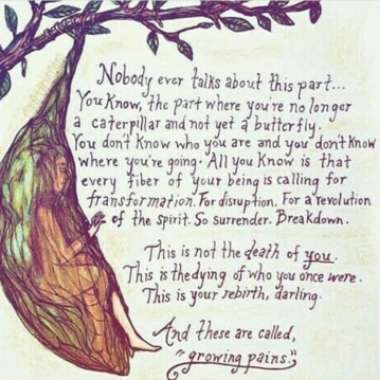 Nobody ever talks about this part...
You know, the part where you're no longer
a caterpillar and not yet a butterfly.
You don't know who you are and you don't know
where you're going. All you know is that
every fiber of your being is calling for
transformation. For disruption. For a revolution
of the spirit. So surrender. Breakdown.
This is not the death of you.
This is the dying of who you once were.
This is your rebirth, darling.
And these are called,
"growing pains."